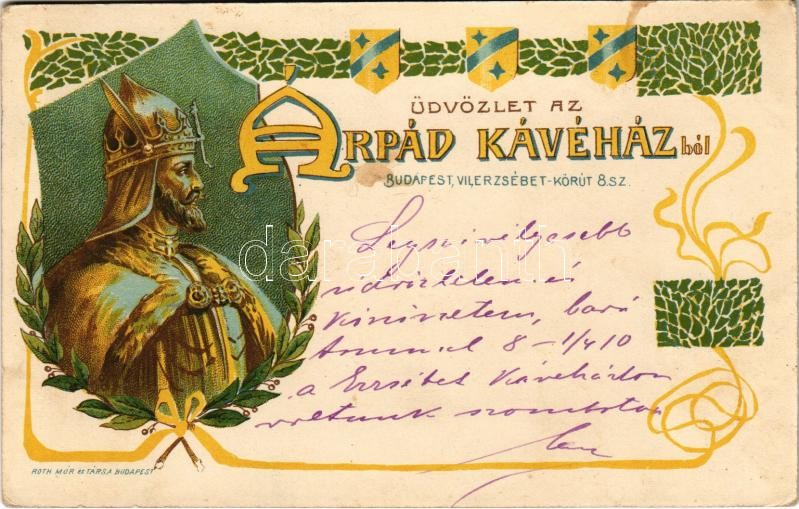 ÜDVÖZLET AZ
ÁRPÁD KÁVÉHÁZból
BUDAPEST, VII., ERZSÉBET-KÖRÚT 8. SZ.
Legszivélyesebb
üdvözletem és
barát
8 - 1/4 10
a Erzsébet Kávéházban
voltunk szombaton
darabanth
ROTH MÓR és TÁRSA BUDAPEST